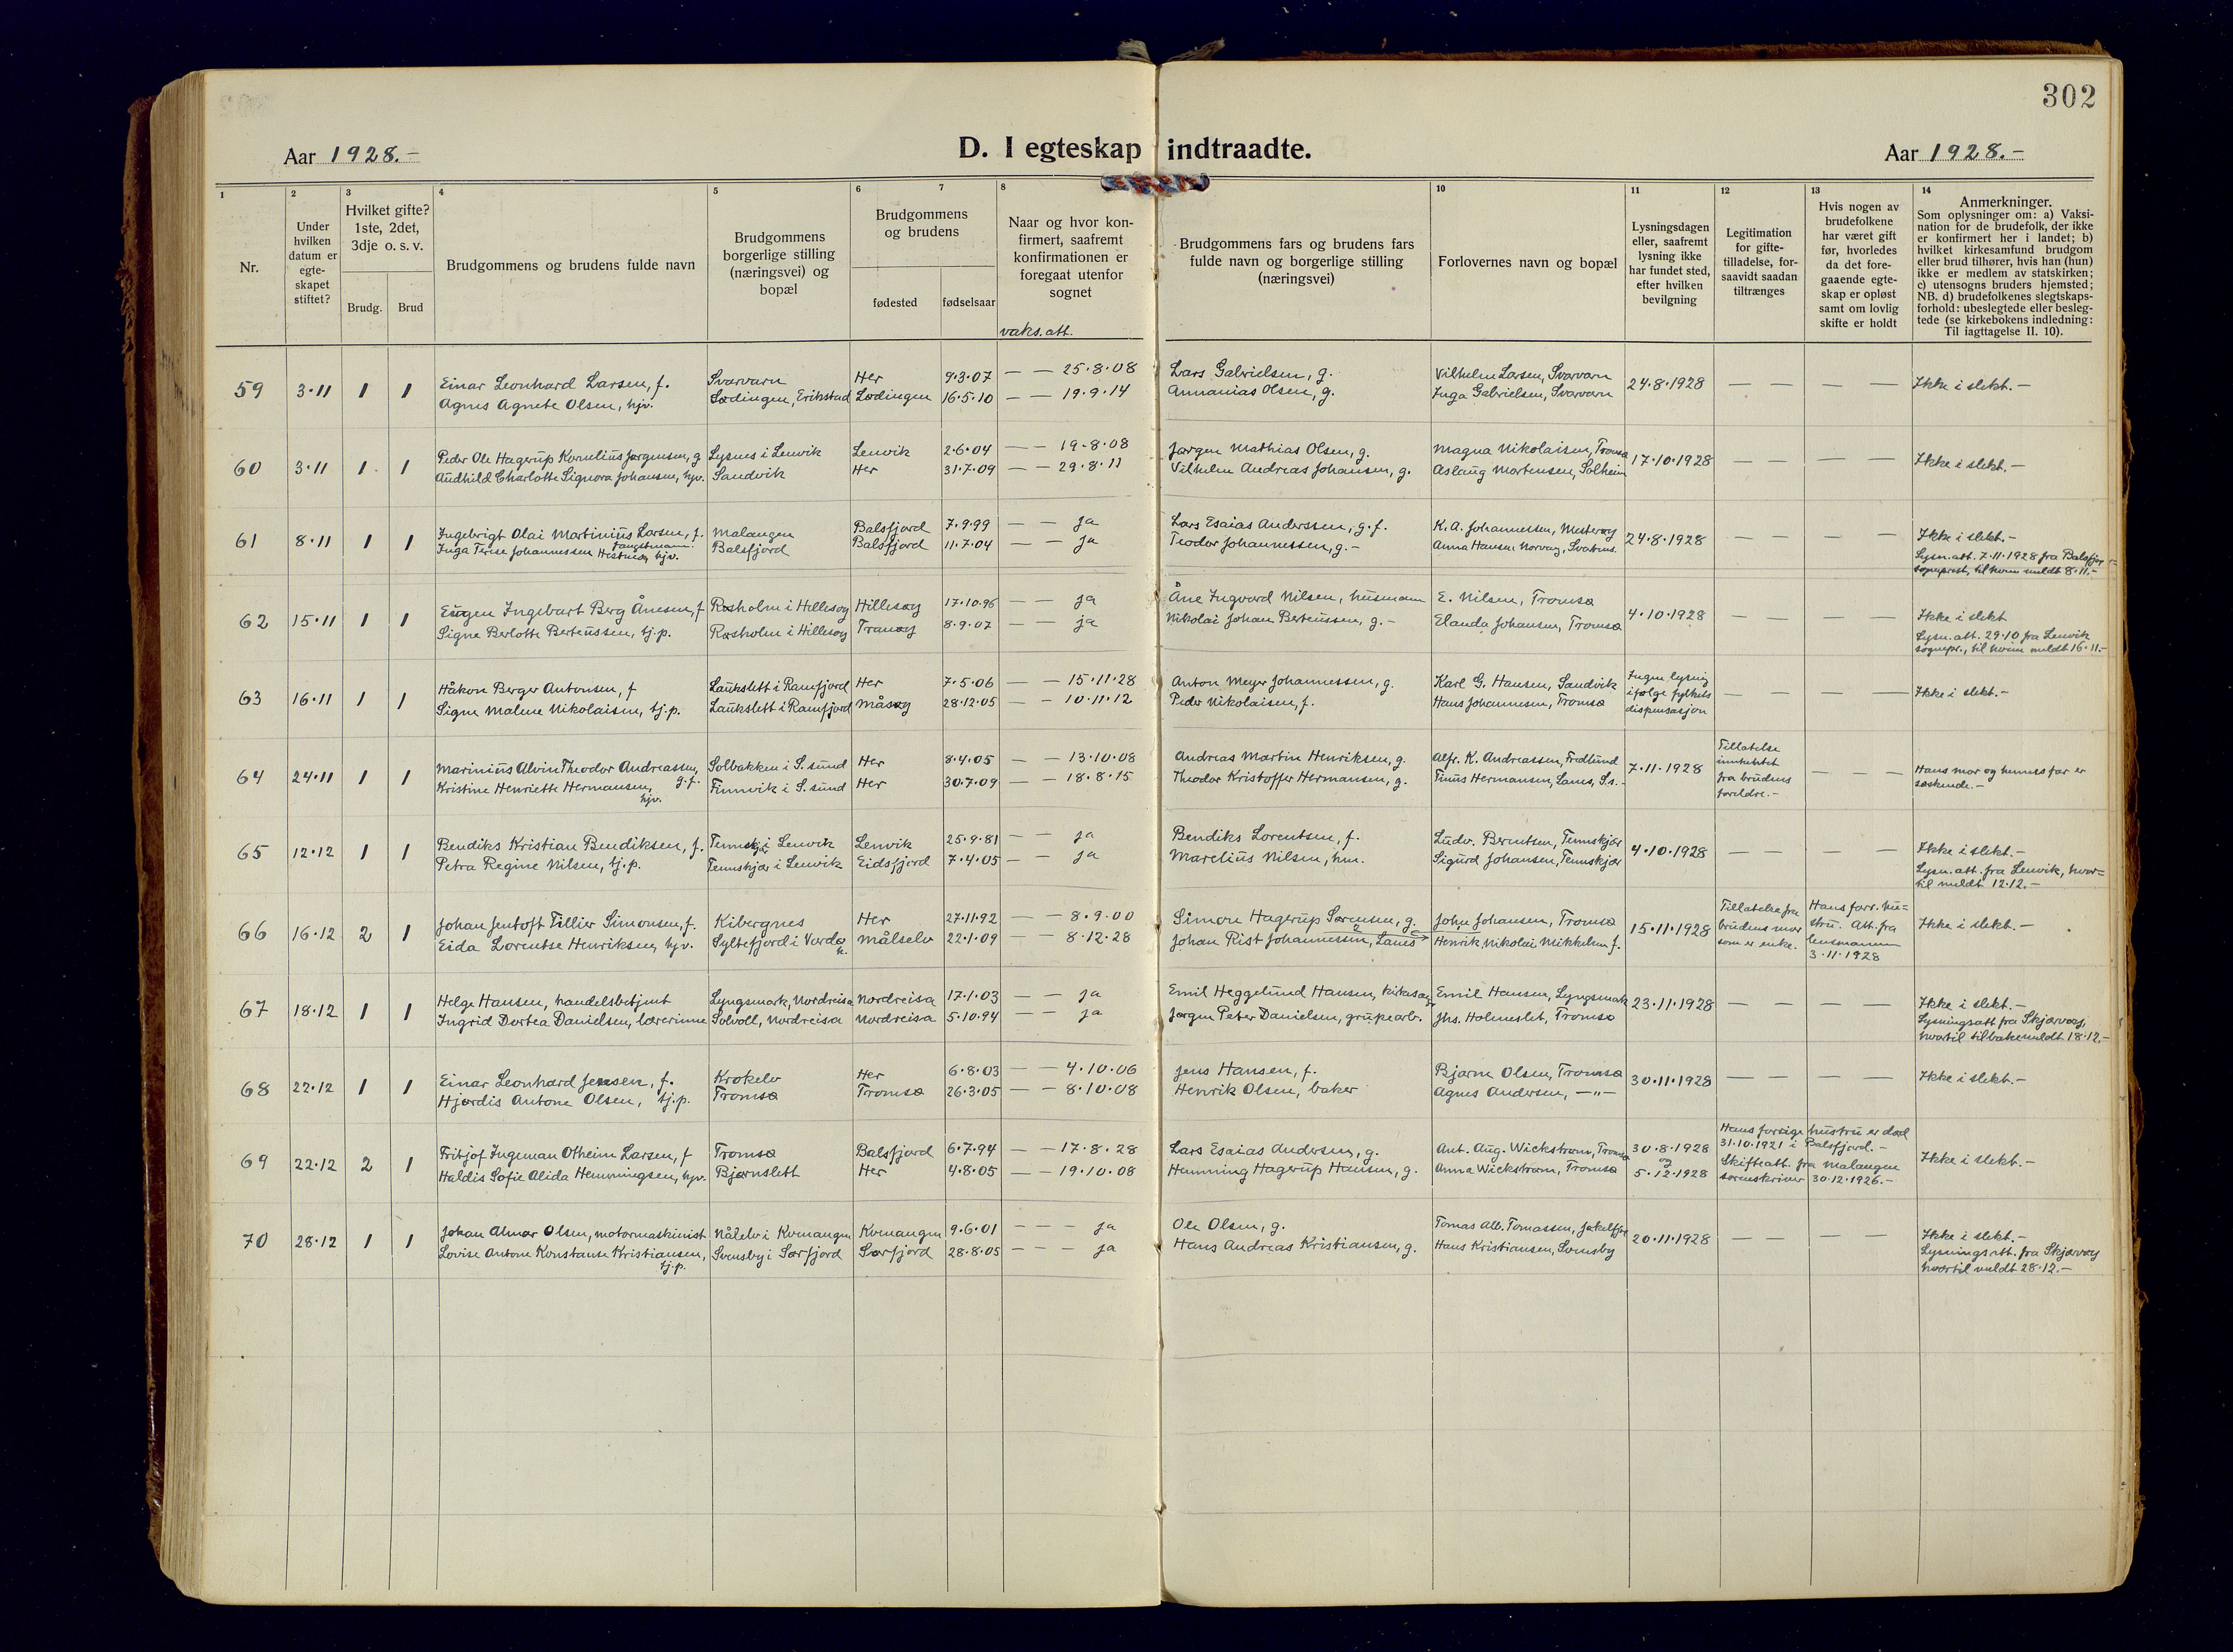 302
Aar 1928.-
D. I egteskap indtraadte.
Aar 1928.-
1 2 3 4 5 6 7 8 10 11 12 13 14
Nr.
Under hvilken datum er egte-skapet stiftet?
Hvilket gifte? 1ste, 2det, 3dje o. s. v.
Brudg. Brud
Brudgommens og brudens fulde navn
Brudgommens borgerlige stilling (næringsvei) og bopæl
Brudgommens og brudens
fødested fødselsaar
Naar og hvor kon-firmert, saafremt konfirmationen er foregaat utenfor sognet
vaks. att.
Brudgommens fars og brudens fars fulde navn og borgerlige stilling (næringsvei)
Forlovernes navn og bopæl
Lysningsdagen eller, saafremt lysning ikke har fundet sted, efter hvilken bevilgning
Legitimation for gifte-tilladelse, for-saavidt saadan tiltrænges
Hvis nogen av brudefolkene har været gift før, hvorledes da det fore-gaaende egte-skap er opløst samt om lovlig skifte er holdt
Anmerkninger.
Som oplysninger om: a) Vaksi-nation for de brudefolk, der ikke er konfirmert her i landet; b) hvilket kirkesamfund brudgom eller brud tilhører, hvis han (hun) ikke er medlem av statskirken; c) utensogns bruders hjemsted; NB. d) brudefolkenes slegtskaps-forhold: ubeslegtede eller besleg-tede (se kirkebokens indledning: Til iagttagelse II. 10).
59 3.11 1 1 Einar Leonhard Larsen, f. Svarvarn Her 9.3.07 — — 25.8.08 Lars Gabrielsen, g. Vilhelm Larsen, Svarvarn 24.8.1928 — — — — Ikke i slekt.-
Agnes Agnete Olsen, hjv. Lødingen, Erikstad Lødingen 16.5.10 — — 19.9.14 Annanias Olsen, g. Inga Gabrielsen, Svarvarn
60 3.11 1 1 Peder Ole Hagerup Kornelius Jørgensen, g Lysnes i Lenvik Lenvik 2.6.04 — — 19.8.08 Jørgen Mathias Olsen, g. Magna Nikolaisen, Tromsø 17.10.1928 — — — — Ikke i slekt.-
Audhild Charlotte Signora Johansen, hjv. Sandvik Her 31.7.09 — — 29.8.11 Vilhelm Andreas Johansen, g. Aslaug Mortensen, Solheim
61 8.11 1 1 Ingebrigt Olai Martinius Larsen, f. Malangen Balsfjord 7.9.99 — — ja Lars Esaias Anderssen, g.f. K. A. Johannessen, Mestervg 24.8.1928 — — — — Ikke i slekt.-
Inga Terese Johannessen hjv. Balsfjord Balsfjord 11.7.04 — — ja Teodor Johannessen, g.- Anna Hansen
Lysn.att. 7.11.1928 fra Balsfjor
sogneprest, til hvem meldt 8.11.-
62 15.11 1 1 Eugen Ingebart Berg Ånesen, f Røsholm i Hillesøy Hillesøy 17.10.96 — — ja Åne Ingvard Nilsen, husmann E. Nilsen, Tromsø 4.10.1928 — — — — Ikke i slekt
Signe Berlotte Berteussen, tj.p. Røsholm i Hillesøy Tranøy 8.9.07 — — ja Nikolai Johan Berteussen, g.- Elanda Johansen, Tromsø
Lysn.att. 29.10 fra Lenvik
sognepr., til hvem meldt 16.11.-
63 16.11 1 1 Håkon Berger Antonsen, f Laukslett i Ramfjord Her 7.5.06 — — 15.11.28 Anton Meyer Johannessen, g. Karl G. Hansen, Sandvik Ingen lysning ifølge fylkets dispensasjon — — — — Ikke i slekt.-
Signe Malene Nikolaisen, tj.p. Laukslett i Ramfjord Måsøy 28.12.05 — — 10.11.12 Peder Nikolaisen, f. Hans Johannesen, Tromsø
64 24.11 1 1 Marinius Alvin Theodor Andreassen, g.f. Solbakken i S. sund Her 8.4.05 — — 13.10.08 Andreas Martin Henriksen, g. Alfr. K. Andreassen, Fredlund 7.11.1928 Tillatelse innhentet fra brudens foreldre.- — — — Hans mor og hennes far er søskende.-
Kristine Henriette Hermansen, hjv. Finnvik i S. sund Her 30.7.09 — — 18.8.15 Theodor Kristoffer Hermansen, g. Tinus Hermansen, Lanes, S.s.-
65 12.12 1 1 Bendiks Kristian Bendiksen, f. Tennskjær i Lenvik Lenvik 25.9.81 — — ja Bendiks Lorentsen, f. Ludv. Berntsen, Tennskjær 4.10.1928 — — — — Ikke i slekt.-
Petra Regine Nilsen, tj.p. Tennskjær i Lenvik Eidsfjord 7.4.05 — — ja Marelius Nilsen, hm. Sigurd Johansen, Tennskjær
Lysn.att. fra Lenvik, hvor=
til meldt 12.12.-
66 16.12 2 1 Johan Jentoft Tillier Simonsen, f. Kibergnes Her 27.11.92 — — 8.9.00 Simon Hagerup Sørensen, g. John Johansen, Tromsø 15.11.1928 Tillatelse fra brudens mor som er enke. Hans forr. hu=stru. Att. fra lensmannen 3.11.1928 Ikke i slekt.-
Eida Lorentse Henriksen, hjv. Syltefjord i Vardø h. Målselv 22.1.09 — — 8.12.28 Johan Rist Johannessen, Lanes Henrik Nikolai Mikkelsen f.
67 18.12 1 1 Helge Hansen, handelsbetjent Lyngsmark, Nordreisa Nordreisa 17.1.03 — — ja Emil Heggelund Hansen, kirkesang Emil Hansen, Lyngsmark 23.11.1928 — — — — Ikke i slekt.-
Ingrid Dortea Danielsen, lærerinne Solvoll, Nordreisa Nordreisa 5.10.94 — — ja Jørgen Peter Danielsen, grubearb. Jhs. Holmeslet, Tromsø
Lysningsatt fra Skjervøy,
hvortil tilbakemeldt 18.12.-
68 22.12 1 1 Einar Leonhard Jensen, f. Krokelv Her 6.8.03 — — 4.10.06 Jens Hansen, f. Bjarne Olsen, Tromsø 30.11.1928 — — — — Ikke i slekt.-
Hjørdis Antone Olsen, tj.p. Tromsø Tromsø 26.3.05 — — 8.10.08 Henrik Olsen, baker Agnes Andersen, —"—
69 22.12 2 1 Fritjof Ingeman Otheim Larsen, f Tromsø Balsfjord 6.7.94 — — 17.8.28 Lars Esaias Andersen, g. Ant. Aug. Wickstrøm, Tromsø 30.8.1928 og 5.12.1928 Hans forrige hustru er død 31.10.1921 i Balsfjord.- Skifteatt. fra Malangen sorenskriver 30.12.1926.- Ikke i slekt.-
Haldis Sofie Alida Hemmingsen, hjv. Bjørnslett Her 4.8.05 — — 19.10.08 Hemming Hagerup Hansen, g. Anna Wickstrøm, Tromsø
70 28.12 1 1 Johan Almar Olsen, motormaskinist Målelv i Kvenangen Kvenangen 9.6.01 — — — ja Ole Olsen, g. Tomas Alb. Tomassen, Jøkelfjor 20.11.1928 — — — — Ikke i slekt.-
Lovise Antone Konstanse Kristiansen, tj.p. Svensby i Sørfjord Sørfjord 28.8.05 — — — ja Hans Andreas Kristiansen, g. Hans Kristiansen, Svensby
Lysningsatt. fra Skjervøy
hvortil meldt 28.12.-